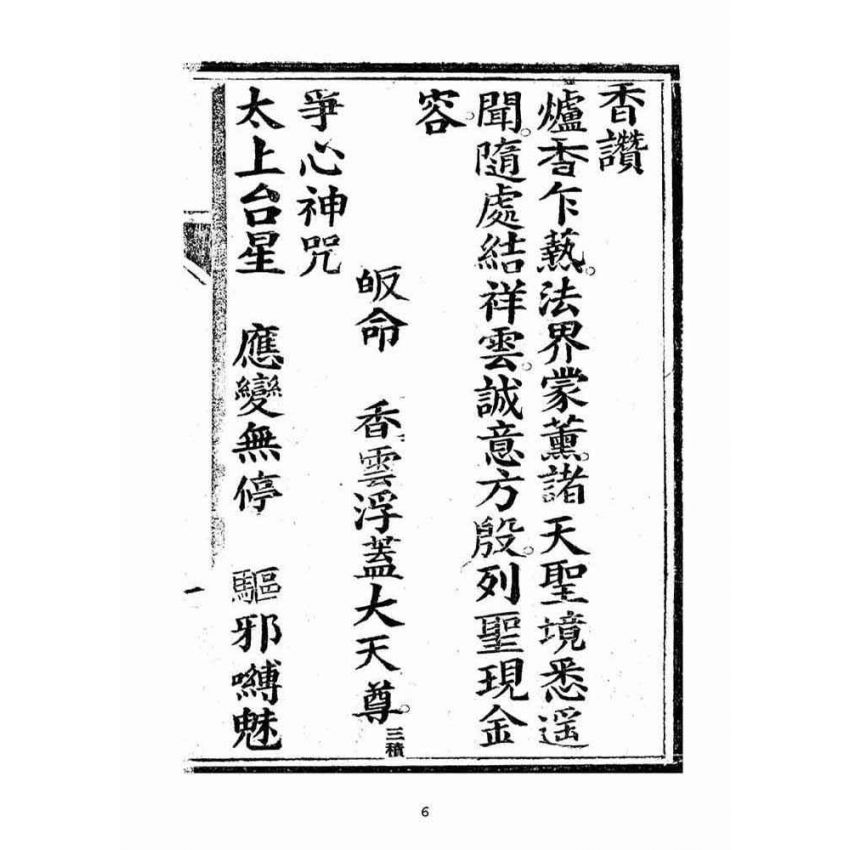 香讚
爐香乍爇。法界蒙薰。諸天聖境悉遥
聞。隨處結祥雲。誠意方殷。列聖現金
容。
皈命 香雲浮蓋大天尊。三稱
爭心神咒
太上台星 應變無停 驅邪嚩魅
6